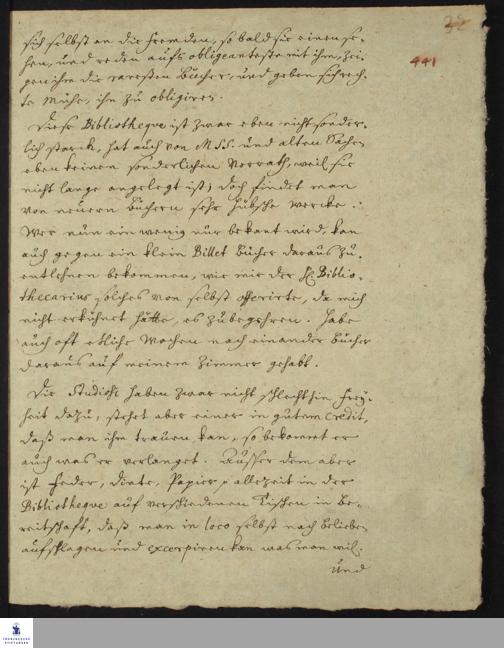 441
sich selbst an die Fremden, so bald sie einen se-
hen, und reden aufs obligeanteste mit ihm, zei-
gen ihm die raresten Bücher, und geben sich rech-
te Mühe, ihn zu obligiren.
Diese Bibliotheque ist zwar eben nicht sonder-
lich starck, hat auch von MSS. und alten Sachen
eben keinen sonderlichen Vorrath, weil sie
nicht lange angelegt ist; doch findet man
von neuern Büchern sehr hübsche Wercke.
Wer nun ein wenig nur bekant wird, kan
auch gegen ein klein Billet Bücher daraus zu
entlehnen bekommen, wie mir der H. Biblio-
thecarius solches von selbst offerirte, da mich
nicht erkühnet hätte, es zubegehren. Habe
auch oft etliche Wochen nach einander Bücher
daraus auf meinem Zimmer gehabt.
Die Studiosi haben zwar nicht schlechthin Frey-
heit dazu, stehet aber einer in gutem Credit,
daß man ihm trauen kan, so bekommt er
auch was er verlanget. Ausser dem aber
ist Feder, Dinte, Papier allezeit in der
Bibliotheque auf verschiedenen Tischen in Be-
reitschaft, daß man in loco selbst nach belieben
aufschlagen und excerpiren kan was man wil.
Und
FRANCKESCHE
STIFTUNGEN